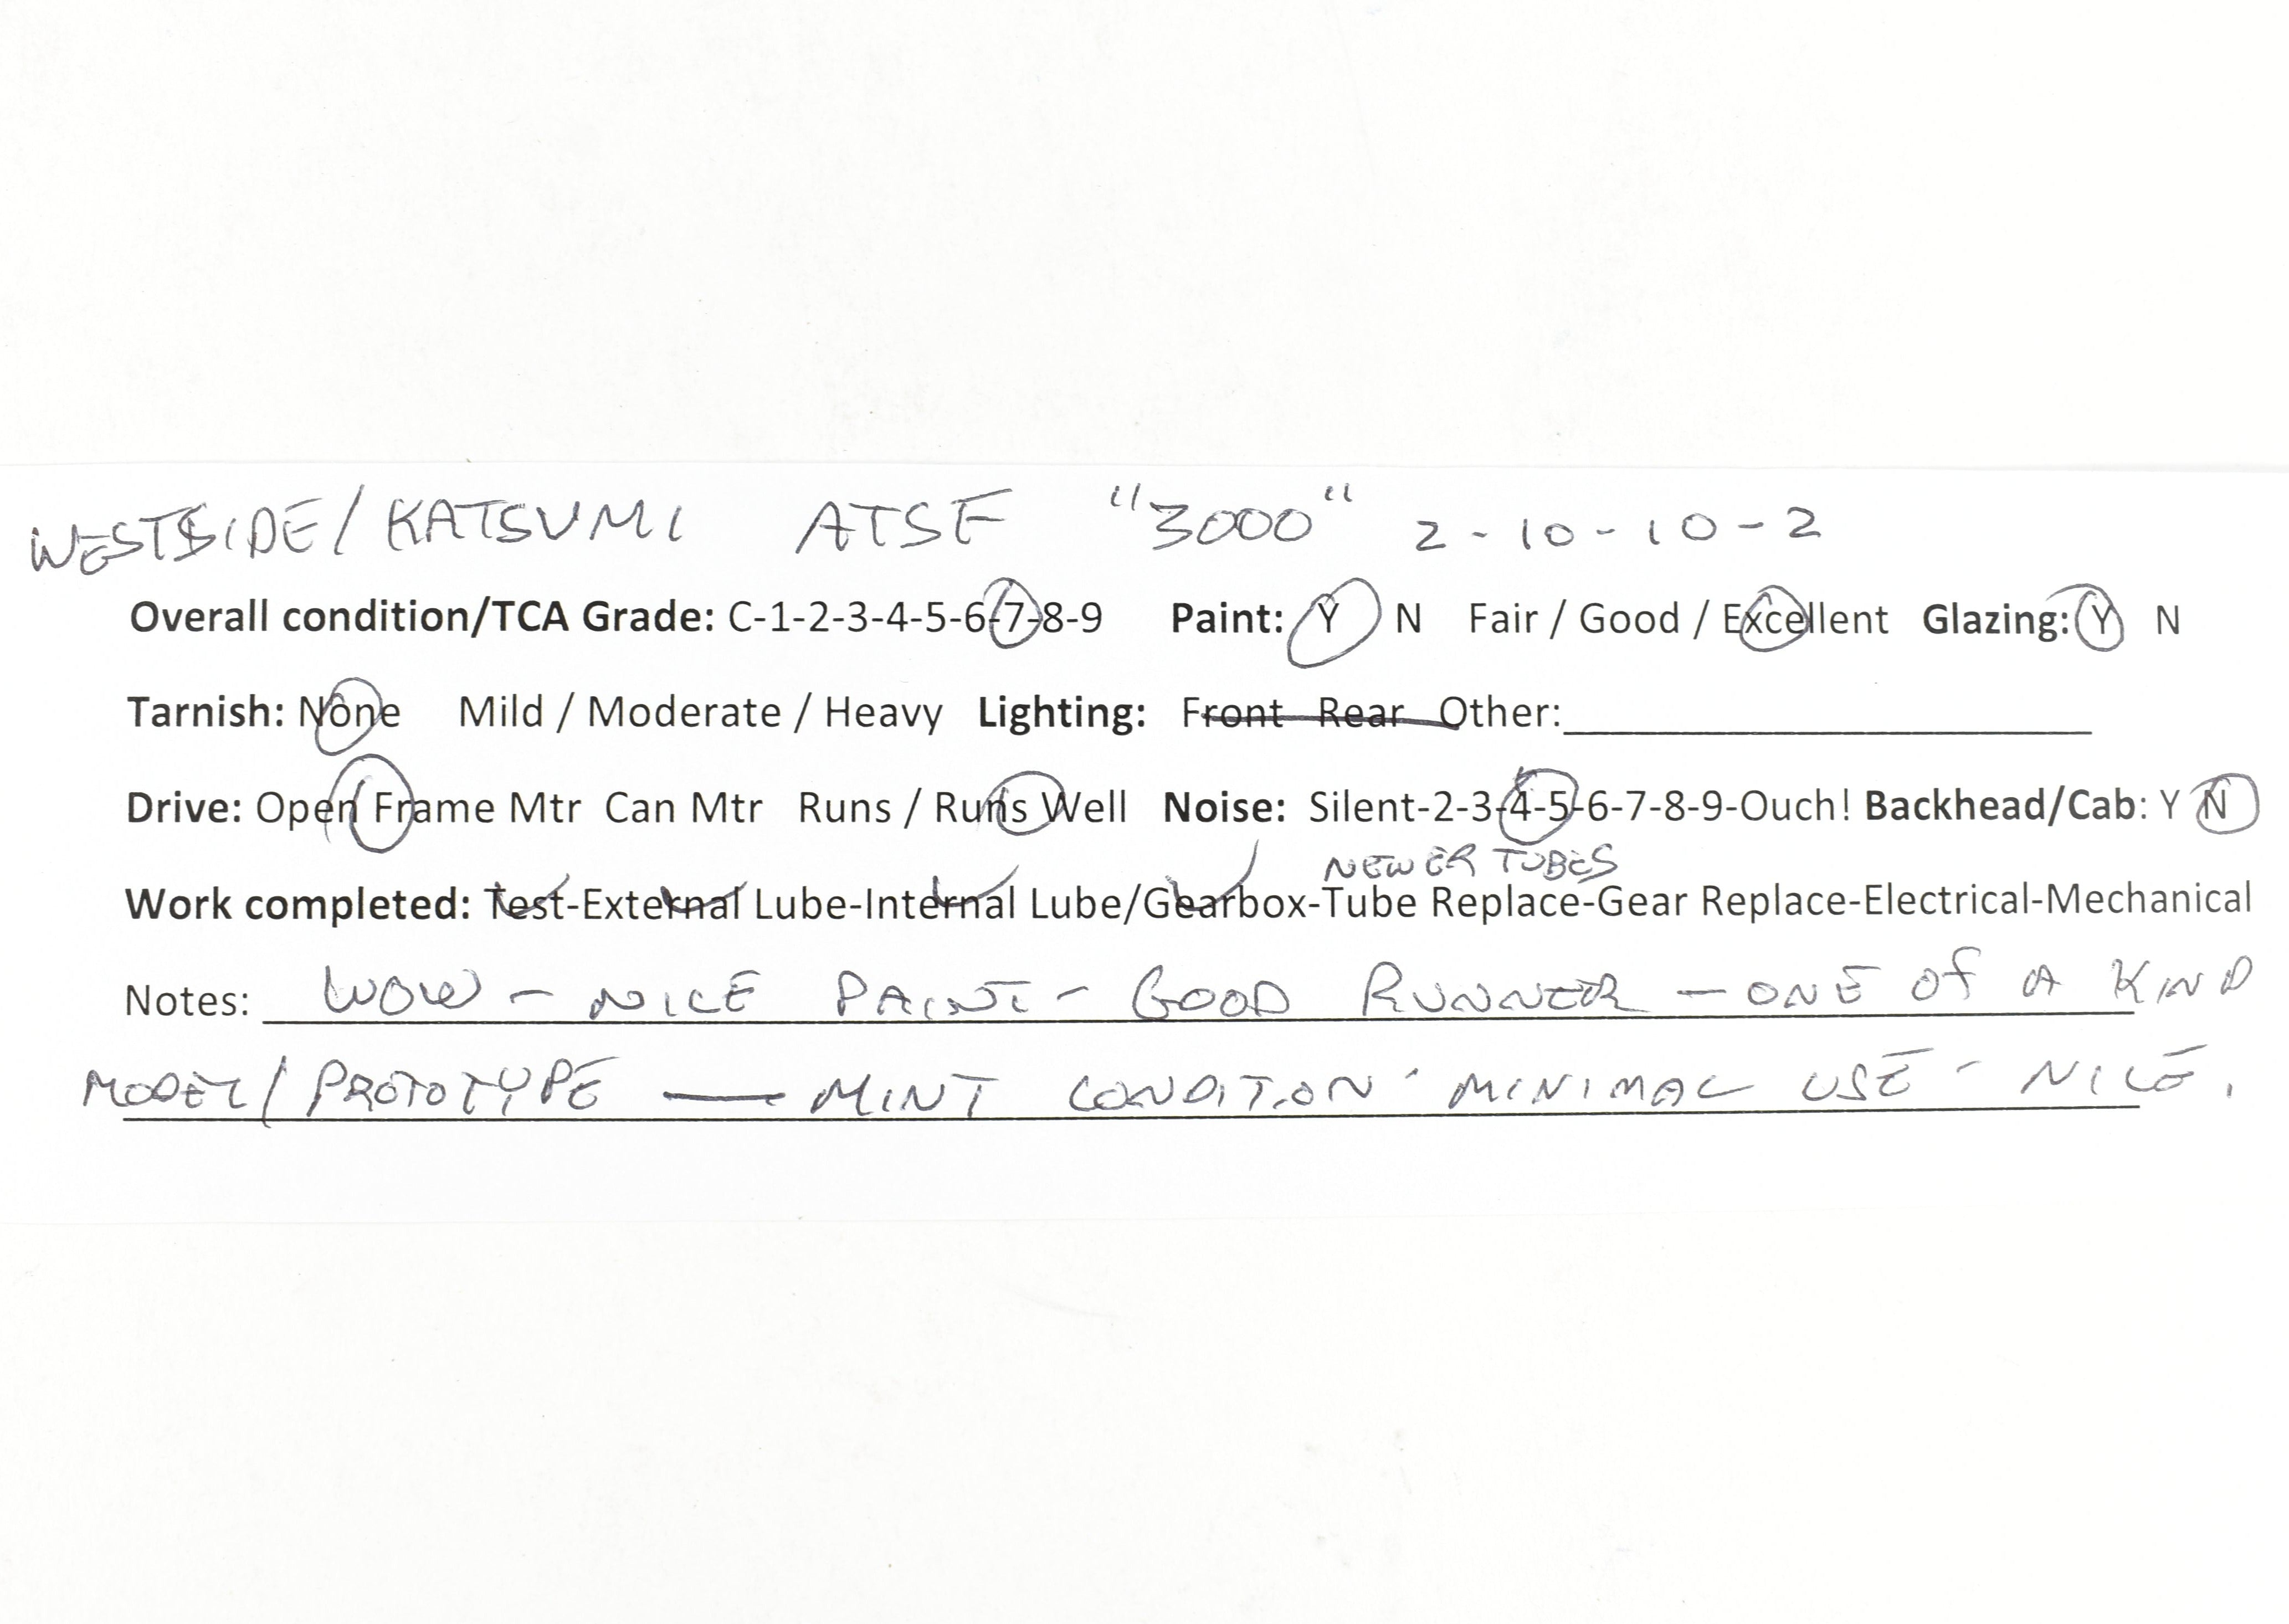 WESTSIDE/KATSUMI ATSF "3000" 2-10-10-2
Overall condition/TCA Grade: C-1-2-3-4-5-6-7-8-9 Paint: Y N Fair / Good / Excellent Glazing: Y N
Tarnish: None Mild / Moderate / Heavy Lighting: Front Rear Other:
Drive: Open Frame Mtr Can Mtr Runs / Runs Well Noise: Silent-2-3-4-5-6-7-8-9-Ouch! Backhead/Cab: Y N
NEWER TUBES
Work completed: Test-External Lube-Internal Lube/Gearbox-Tube Replace-Gear Replace-Electrical-Mechanical
Notes: WOW - NICE PAINT - GOOD RUNNER - ONE of A KIND
MODEL/PROTOTYPE — MINT CONDITION - MINIMAL USE - NICE.